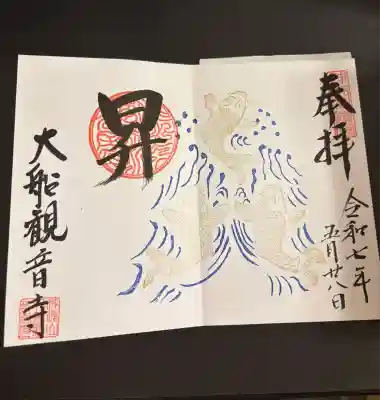 奉拝
令和七年
五月廿八日
昇
大船観音寺